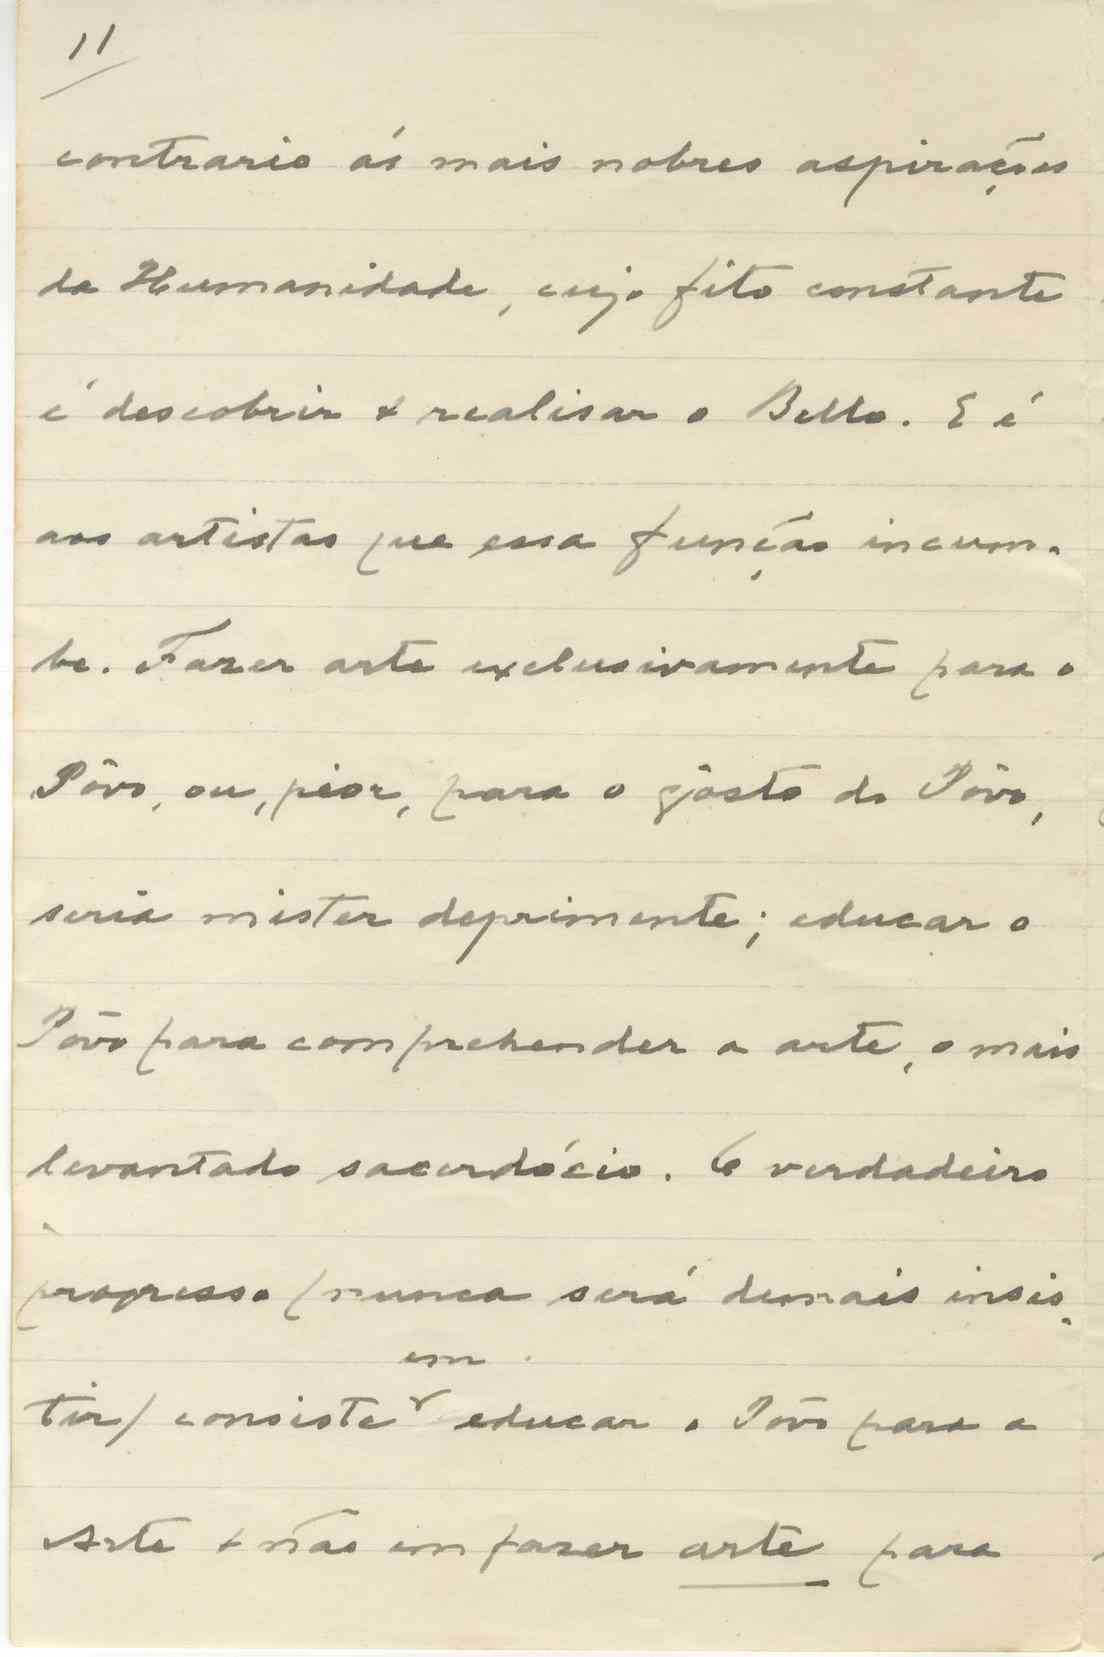 11
contrario ás mais nobres aspirações
da Humanidade, cujo fito constante
é descobrir & realisar o Bello. E é
aos artistas que essa função incum-
be. Fazer arte exclusivamente para o
Pôvo, ou, pior, para o gôsto do Pôvo,
seria mister deprimente; educar o
Pôvo para comprehender a arte, o mais
levantado sacerdócio. O verdadeiro
progresso (nunca será demais insis-
em
tir) consiste educar o Pôvo para a
Arte & não em fazer arte para